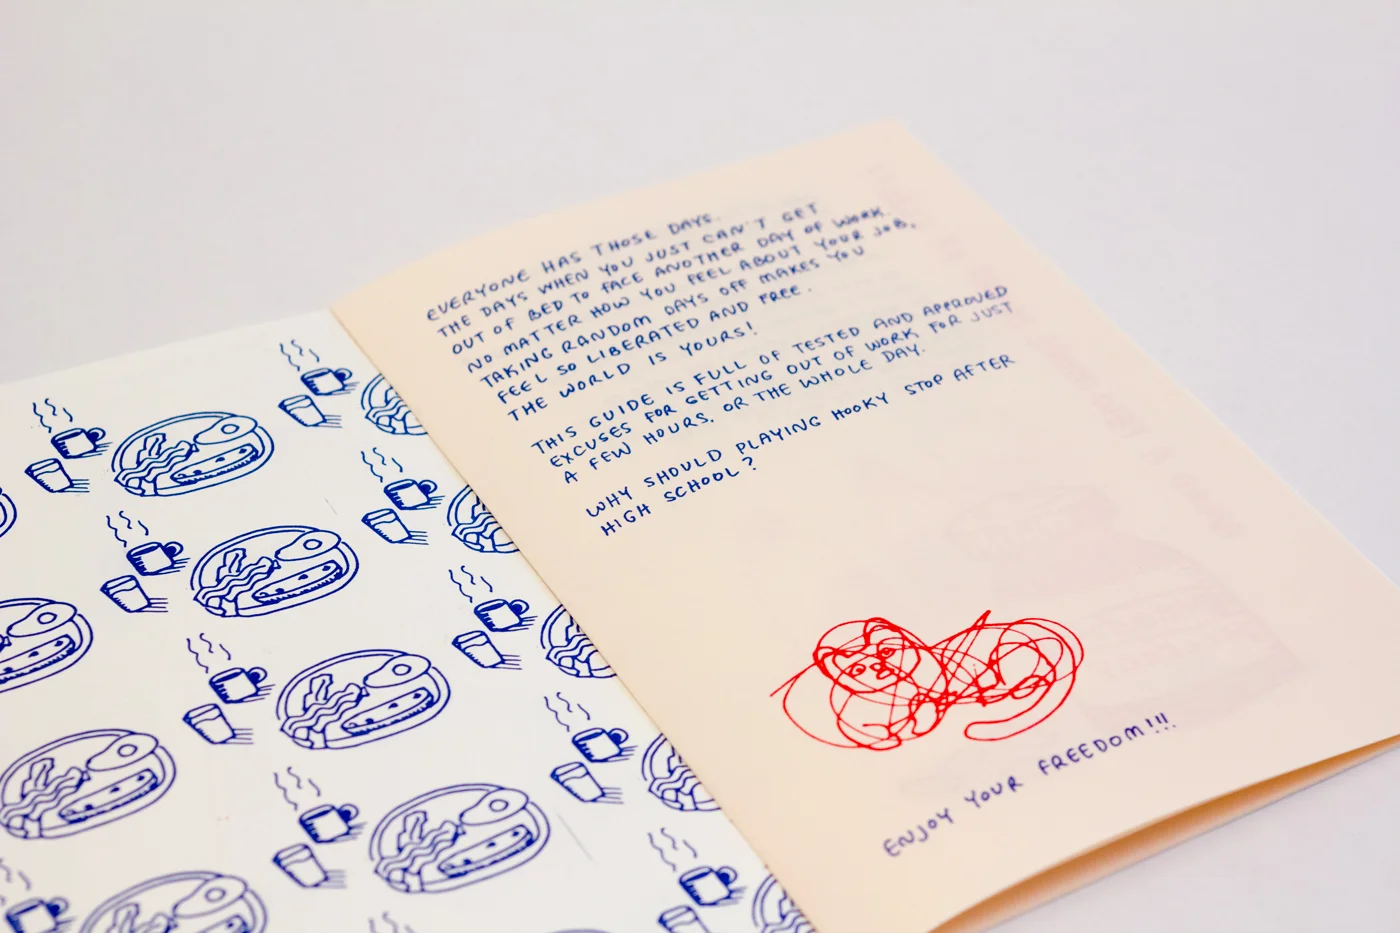 EVERYONE HAS THOSE DAYS.
THE DAYS WHEN YOU JUST CAN'T GET
OUT OF BED TO FACE ANOTHER DAY OF WORK.
NO MATTER HOW YOU FEEL ABOUT YOUR JOB,
TAKING RANDOM DAYS OFF MAKES YOU
FEEL SO LIBERATED AND FREE.
THE WORLD IS YOURS!
THIS GUIDE IS FULL OF TESTED AND APPROVED
EXCUSES FOR GETTING OUT OF WORK FOR JUST
A FEW HOURS, OR THE WHOLE DAY.
WHY SHOULD PLAYING HOOKY STOP AFTER
HIGH SCHOOL?
ENJOY YOUR FREEDOM!!!